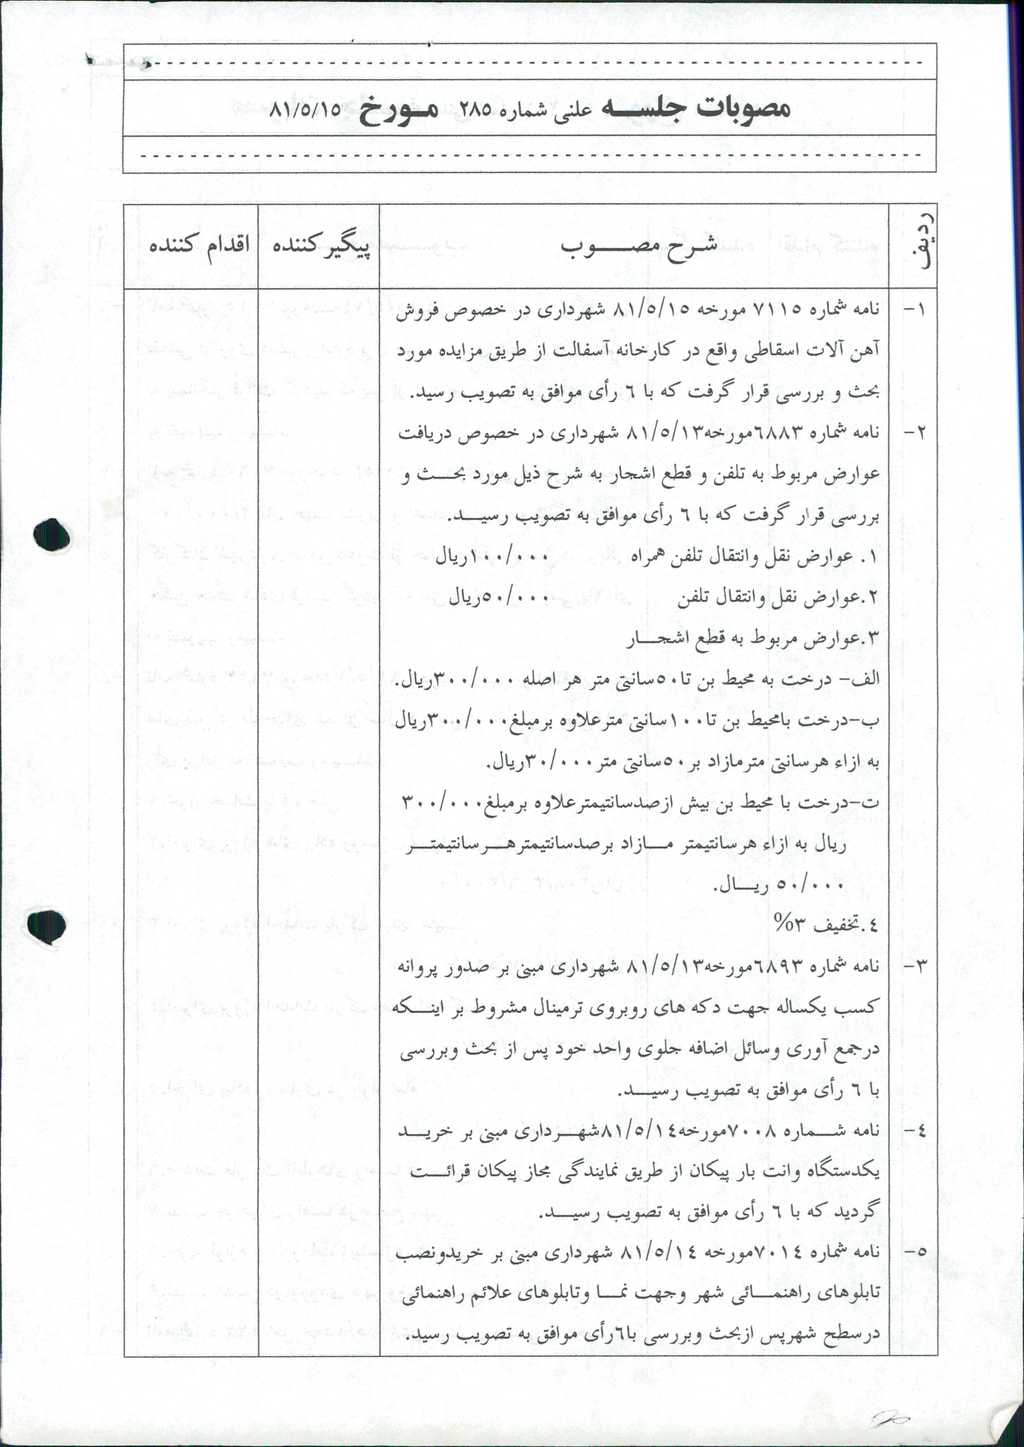 مصوبات جلسه علنی شماره ۲۸۵ مورخ ۸۱/۵/۱۵
ردیف شرح مصوب پیگیر کننده اقدام کننده
۱- نامه شماره ۷۱۱۵ مورخه ۸۱/۵/۱۵ شهرداری در خصوص فروش
آهن آلات اسقاطی واقع در کارخانه آسفالت از طریق مزایده مورد
بحث و بررسی قرار گرفت که با ٦ رأی موافق به تصویب رسید.
۲- نامه شماره ٦۸۸۳مورخه۸۱/۵/۱۳ شهرداری در خصوص دریافت
عوارض مربوط به تلفن و قطع اشجار به شرح ذیل مورد بحث و
بررسی قرار گرفت که با ٦ رأی موافق به تصویب رسید.
۱. عوارض نقل وانتقال تلفن همراه ۱۰۰/۰۰۰ریال
۲.عوارض نقل وانتقال تلفن ۵۰/۰۰۰ریال
۳.عوارض مربوط به قطع اشجار
الف- درخت به محیط بن تا۵۰سانتی متر هر اصله ۳۰۰/۰۰۰ریال.
ب-درخت بامحیط بن تا۱۰۰سانتی مترعلاوه برمبلغ۳۰۰/۰۰۰ریال
به ازاء هرسانتی مترمازاد بر۵۰سانتی متر۳۰/۰۰۰ریال.
ت-درخت با محیط بن بیش ازصدسانتیمترعلاوه برمبلغ۳۰۰/۰۰۰
ریال به ازاء هرسانتیمتر مازاد برصدسانتیمترهرسانتیمتر
۵۰/۰۰۰ ریال.
٤.تخفیف ۳%
۳- نامه شماره ٦۸۹۳مورخه۸۱/۵/۱۳ شهرداری مبنی بر صدور پروانه
کسب یکساله جهت دکه های روبروی ترمینال مشروط بر اینکه
درجمع آوری وسائل اضافه جلوی واحد خود پس از بحث وبررسی
با ٦ رأی موافق به تصویب رسید.
٤- نامه شماره ۷۰۰۸مورخه۸۱/۵/۱٤شهرداری مبنی بر خرید
یکدستگاه وانت بار پیکان از طریق نمایندگی مجاز پیکان قرائت
گردید که با ٦ رأی موافق به تصویب رسید.
۵- نامه شماره ۷۰۱٤مورخه ۸۱/۵/۱٤ شهرداری مبنی بر خریدونصب
تابلوهای راهنمائی شهر وجهت نما وتابلوهای علائم راهنمائی
درسطح شهرپس ازبحث وبررسی با٦رأی موافق به تصویب رسید.